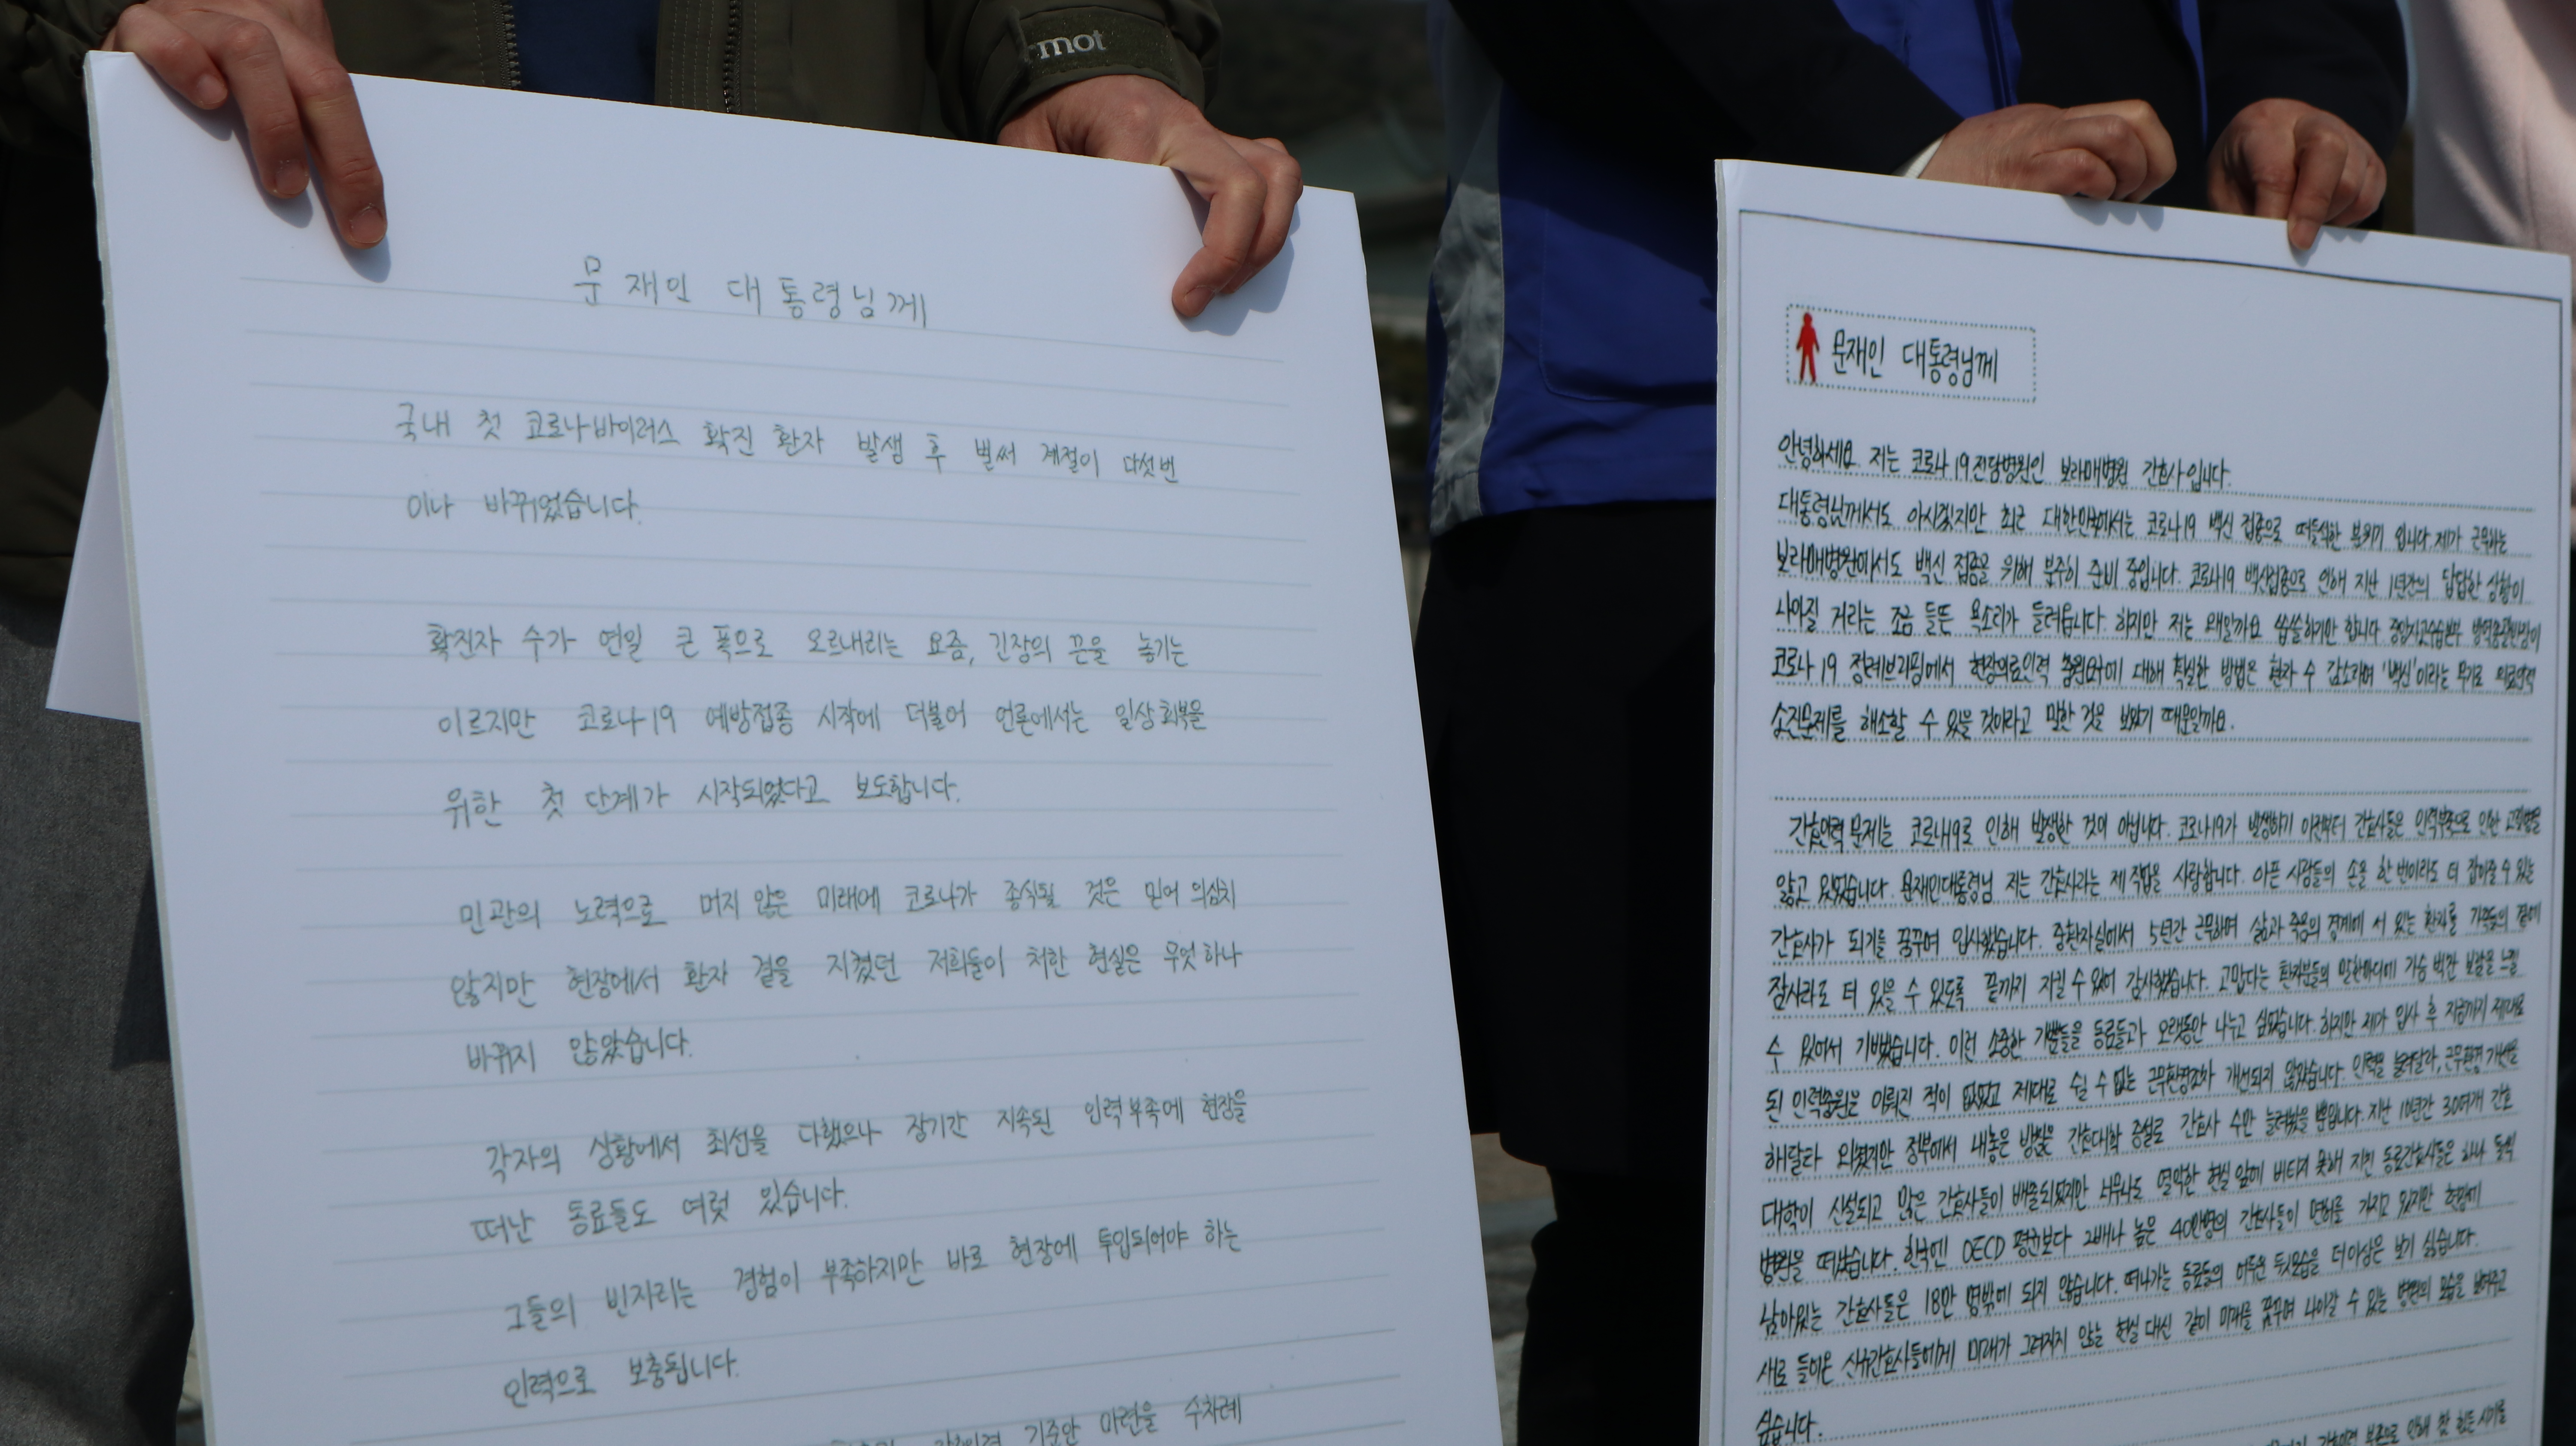 mot
문재인 대통령님께
국내 첫 코로나바이러스 확진 환자 발생 후 벌써 계절이 다섯번
이나 바뀌었습니다.
확진자 수가 연일 큰 폭으로 오르내리는 요즘, 긴장의 끈을 놓기는
이르지만 코로나19 예방접종 시작에 더불어 언론에서는 일상회복을
위한 첫 단계가 시작되었다고 보도합니다.
민관의 노력으로 머지 않은 미래에 코로나가 종식될 것은 믿어 의심치
않지만 현장에서 환자 곁을 지켰던 저희들이 처한 현실은 무엇하나
바뀌지 않았습니다.
각자의 상황에서 최선을 다했으나 장기간 지속된 인력부족에 현장을
떠난 동료들도 여럿 있습니다.
그들의 빈자리는 경험이 부족하지만 바로 현장에 투입되어야 하는
인력으로 보충됩니다.
기준안 마련을 수차례
문재인 대통령님께
안녕하세요 저는 코로나19전담병원인 보라매병원 간호사입니다.
대통령님께서도 아시겠지만 최근 대한민국에서는 코로나19 백신 접종으로 떠들석한 분위기 입니다. 제가 근무하는
보라매병원에서도 백신 접종을 위해 분주히 준비 중입니다. 코로나19 백신접종으로 인해 지난 1년간의 답답한 상황이
나아질 거라는 조금 들뜬 목소리가 들려옵니다. 하지만 저는 왜일까요 씁쓸하기만 합니다. 중앙사고수습본부 방역총괄반장이
코로나19 정례브리핑에서 현장의료인력 충원요구에 대해 확실한 방법은 환자 수 감소라며 '백신'이라는 무기로 의료인력
소진문제를 해소할 수 있을 것이라고 말한 것을 보았기 때문일까요.
간호인력 문제는 코로나19로 인해 발생한 것이 아닙니다. 코로나19가 발생하기 이전부터 간호사들은 인력부족으로 인한
앓고 있었습니다. 문재인대통령님 저는 간호사라는 제 직업을 사랑합니다. 아픈 사람들의 손을 한 번이라도 더 잡아줄 수 있는
간호사가 되기를 꿈꾸며 입사했습니다. 중환자실에서 5년간 근무하며 삶과 죽음의 경계에 서 있는 환자를 가족들의 곁에
잠시라도 더 있을 수 있도록 끝까지 지킬 수 있어 감사했습니다. 고맙다는 환자분들의 말한마디에 가슴 벅찬 보람을 느낄
수 있어서 기뻤습니다. 이런 소중한 기분들을 동료들과 오랫동안 나누고 싶었습니다. 하지만 제가 입사 후 지금까지 제대로
된 인력충원은 이뤄진 적이 없었고 제대로 쉴 수 없는 근무환경조차 개선되지 않았습니다. 인력을 늘려달라, 근무환경 개선을
해달라 외쳤지만 정부에서 내놓은 방법은 간호대학 증설로 간호사 수만 늘려놨을 뿐입니다. 지난 10년간 30여개 간호
대학이 신설되고 많은 간호사들이 배출되었지만 너무나도 열악한 현실 앞에 버티지 못해 지친 동료간호사들은 하나 둘씩
병원을 떠났습니다. 한국엔 OECD 평균보다 2배나 높은 40만명의 간호사들이 면허를 가지고 있지만 현장에
남아있는 간호사들은 18만 명밖에 되지 않습니다. 떠나가는 동료들의 어두운 뒷모습을 더이상은 보기 싫습니다.
새로 들어온 신규간호사들에게 미래가 그려지지 않는 현실 대신 같이 미래를 꿈꾸며 나아갈 수 있는 병원의 모습을 보여주고
싶습니다.